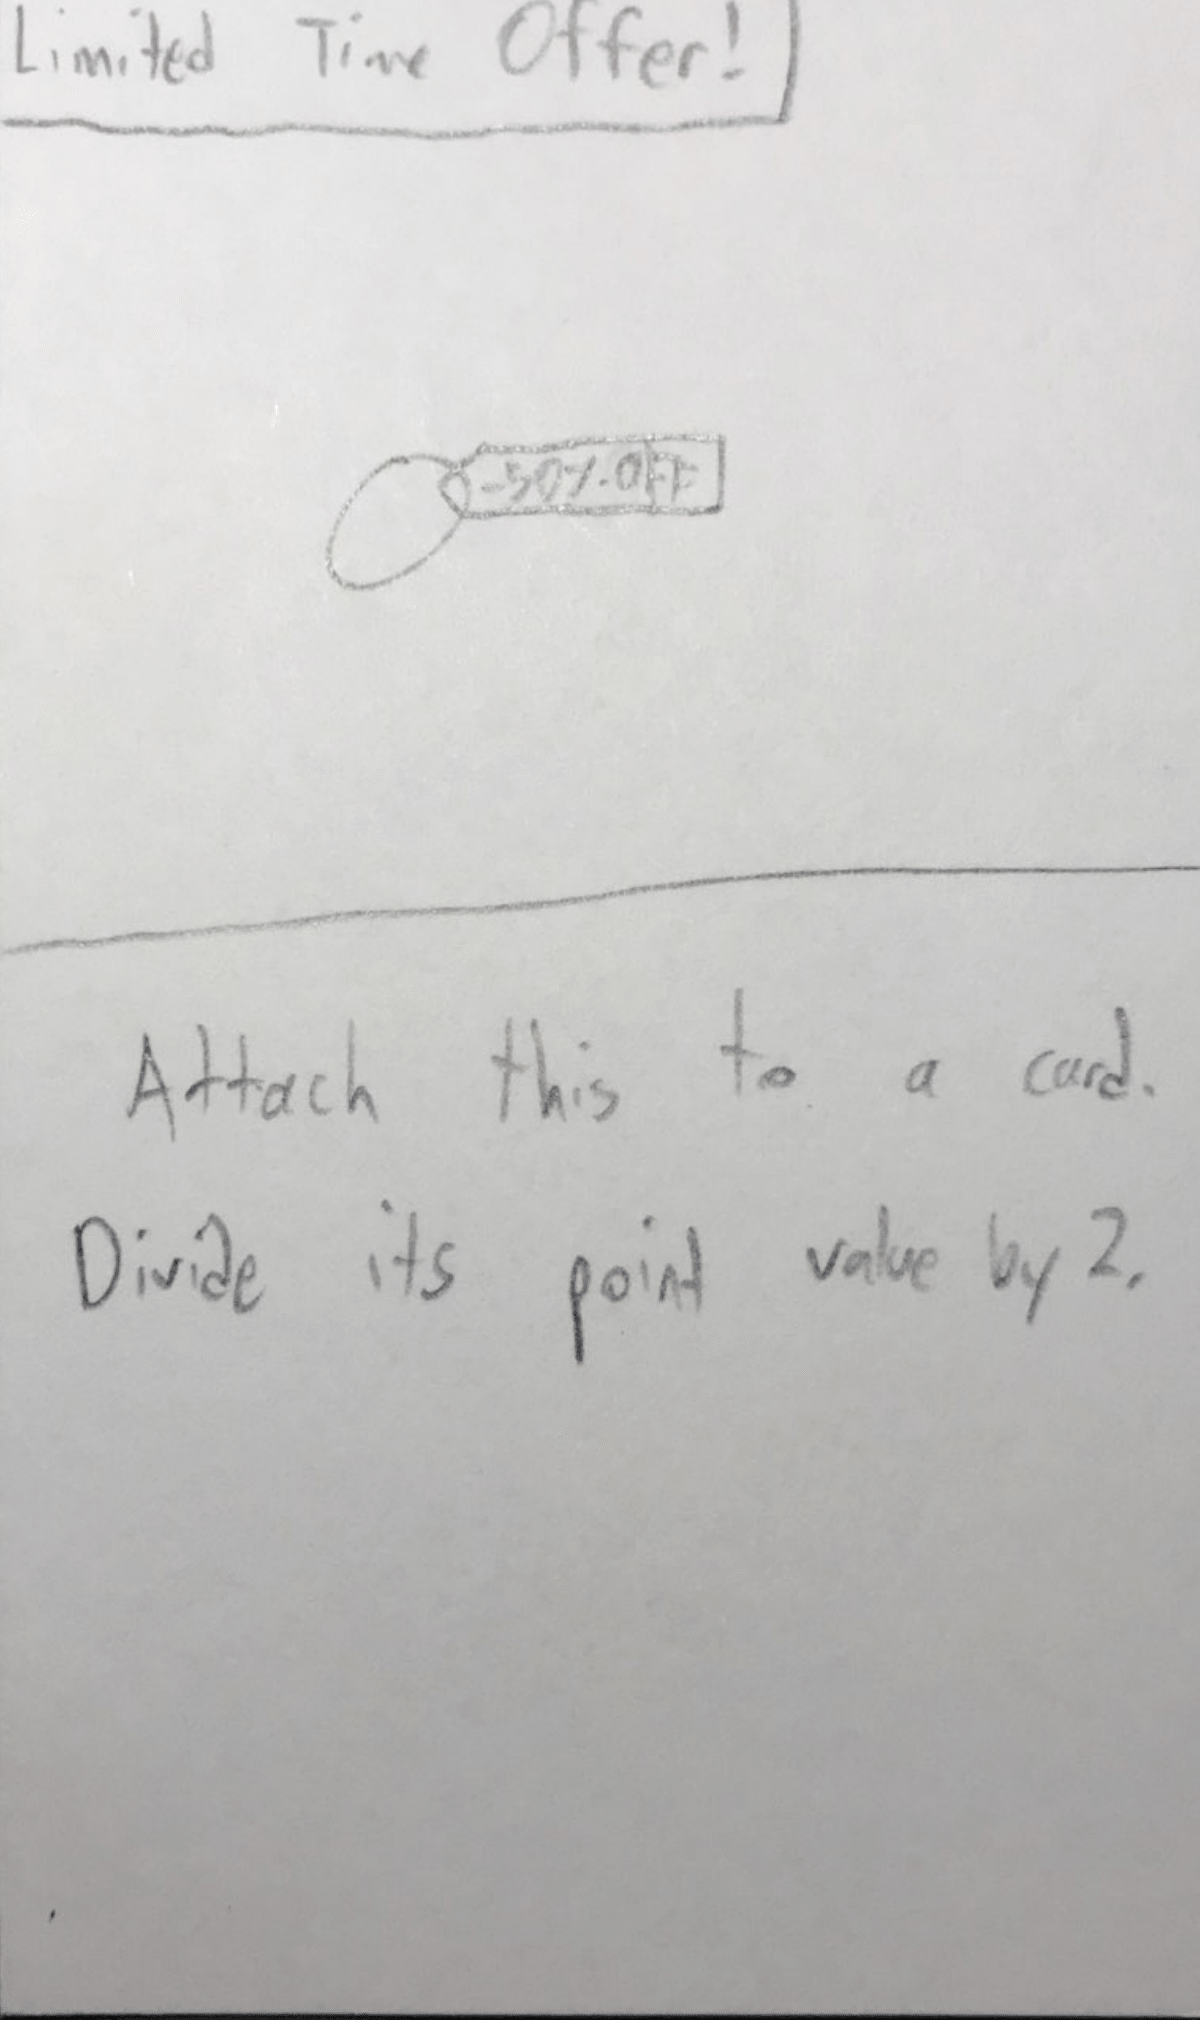 Limited Time Offer!
-50% OFF
Attach this to a card.
Divide its point value by 2.